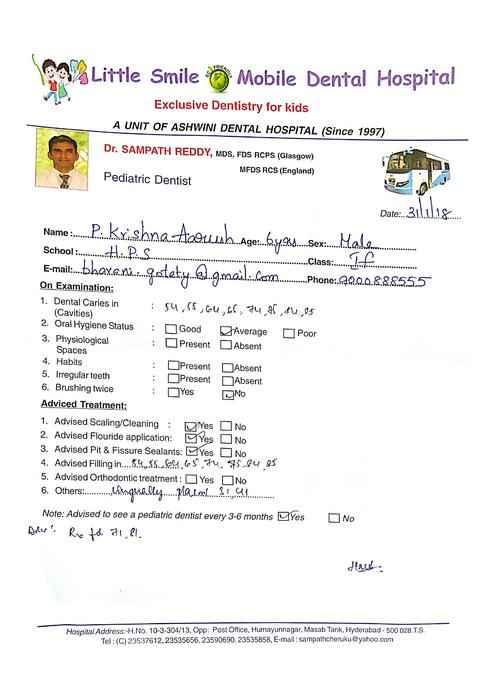 Little Smile Mobile Dental Hospital
ECO FRIENDLY
Exclusive Dentistry for kids
A UNIT OF ASHWINI DENTAL HOSPITAL (Since 1997)
Dr. SAMPATH REDDY, MDS, FDS RCPS (Glasgow)
MFDS RCS (England)
Pediatric Dentist
Date: 31/1/18
Name: P. Krishna Age: 6yrs Sex: Male
School: H.P.S Class: If
E-mail: bharani.gotety@gmail.com Phone: 9000888555
On Examination:
1. Dental Caries in (Cavities) : 54, 55, 64, 65, 74, 75, 84, 85
2. Oral Hygiene Status : Good Average Poor
3. Physiological Spaces : Present Absent
4. Habits : Present Absent
5. Irregular teeth : Present Absent
6. Brushing twice : Yes No
Adviced Treatment:
1. Advised Scaling/Cleaning : Yes No
2. Advised Flouride application: Yes No
3. Advised Pit & Fissure Sealants: Yes No
4. Advised Filling in 54, 55, 64, 65, 74, 75, 84, 85
5. Advised Orthodontic treatment : Yes No
6. Others: Lingually placed 31, 41
Note: Advised to see a pediatric dentist every 3-6 months Yes No
71, 81.
Hospital Address:-H.No. 10-3-304/13, Opp: Post Office, Humayunnagar, Masab Tank, Hyderabad - 500 028.T.S.
Tel : (C) 23537612, 23535656, 23590690, 23535858, E-mail : sampathcheruku@yahoo.com